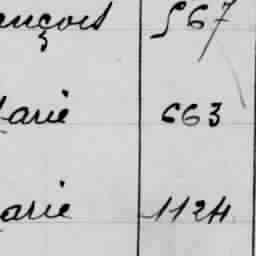 ançois 567
Marie 663
Marie 1124